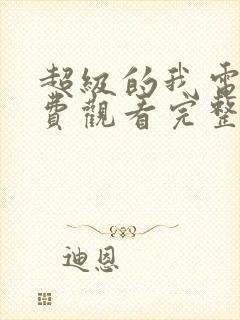 超級的我電
費觀看完整
迪恩